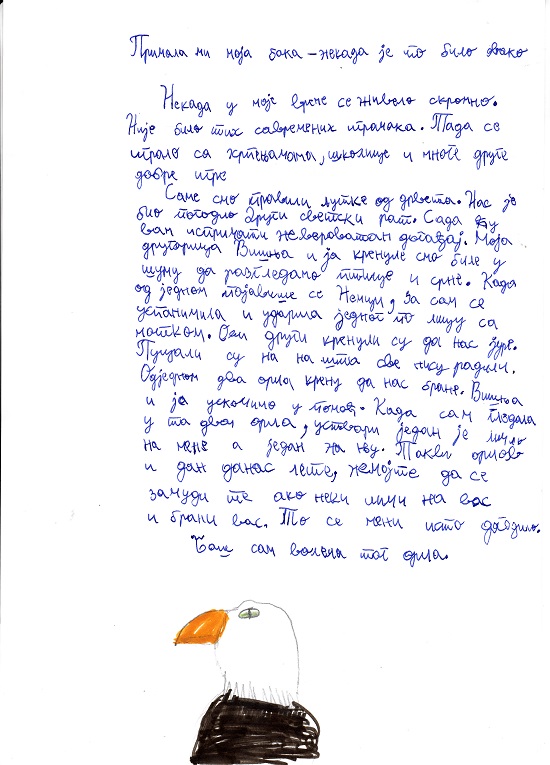 Причала ми моја бака – некада је то било овако
Некада у моје време се живело скромно.
Није било тих савремених играчака. Тада се
играло са крпењачама, школице и многе друге
добре игре
Саме смо правили лутке од дрвета. Нас је
био погодио други светски рат. Сада ћу
вам испричати невероватан догађај. Моја
другарица Вишња и ја кренуле смо биле у
шуму да разгледамо птице и срне. Када
од једном појавише се Немци, ја сам се
успаничила и ударила једног по лицу са
мотком. Они други кренули су да нас јуре.
Пуцали су на на шта све нису радили.
Одједном два орла крену да нас бране. Вишња
и ја ускочимо у помоћ. Када сам гледала
у та два орла, уствари један је личио
на мене а један на њу. Такви орлови
и дан данас лете, немојте да се
зачуди те ако неки личи на вас
и брани вас. То се мени исто догодило.
Баш сам волела тог орла.